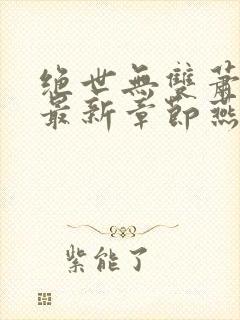 绝世无双萧
最新章节燕
紫能了